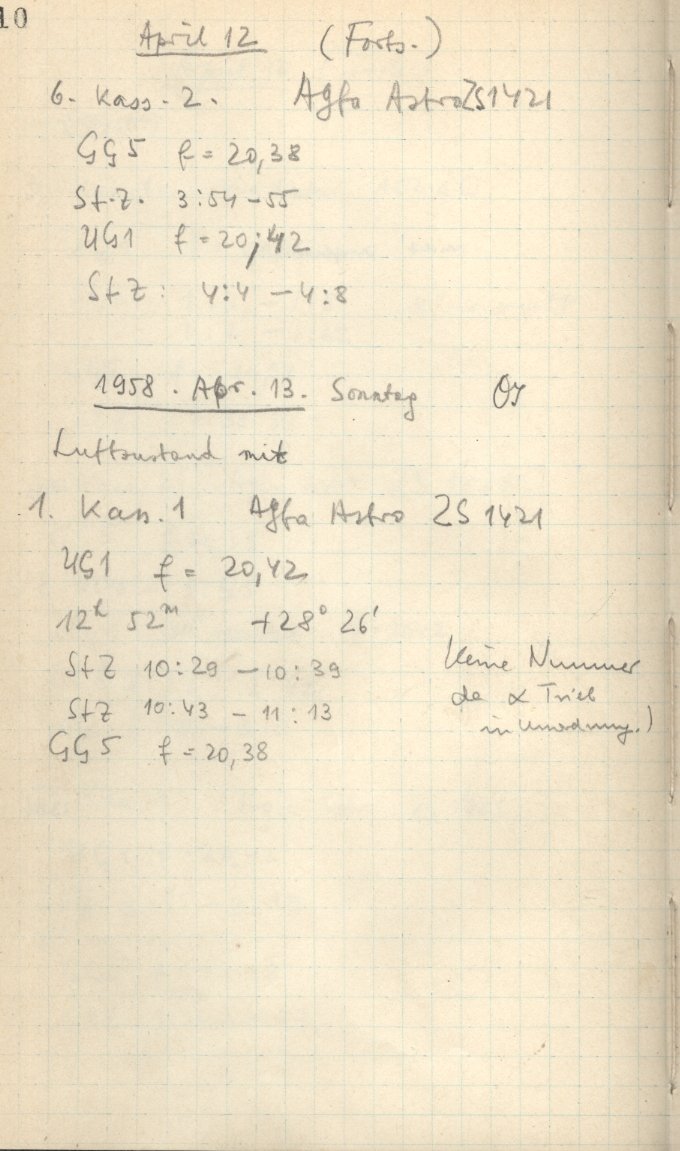 10
April 12 (Forts.)
6. Kass. 2. Agfa Astro ZS 1421
GG5 f = 20,38
St.Z. 3:54 - 55
UG1 f = 20,42
StZ: 4:4 - 4:8
1958. Apr. 13. Sonntag
Luftzustand mit
1. Kass. 1 Agfa Astro ZS 1421
UG1 f = 20,42
12h 52m +28° 26'
StZ 10:29 - 10:39
StZ 10:43 - 11:13
GG5 f = 20,38
Keine Nummer
da α Trieb
in Unordnung.)